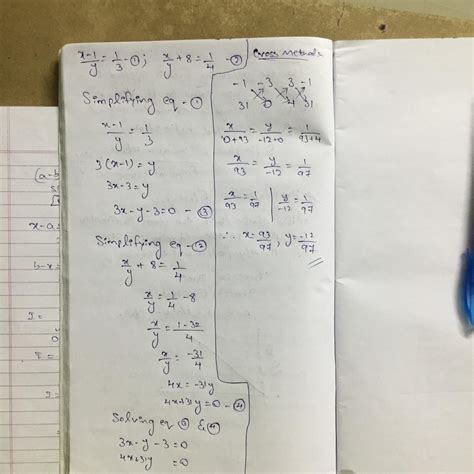 x-1/y = 1/3 - ① ; x/y + 8 = 1/4 - ②
Simplifying eq - ①
x-1/y = 1/3
3(x-1) = y
3x-3 = y
3x-y-3=0 - ③
Simplifying eq - ②
x/y + 8 = 1/4
x/y = 1/4 - 8
x/y = 1-32/4
x/y = -31/4
4x = -31y
4x+31y = 0 - ④
Solving eq ③ & ④
3x-y-3=0
4x+31y =0
Cross Method:
-1 -3 3 -1
31 0 4 31
x/0+93 = y/-12+0 = 1/93+4
x/93 = y/-12 = 1/97
x/93 = 1/97 | y/-12 = 1/97
∴ x = 93/97, y = -12/97
(a-b
x-a=
b-x=